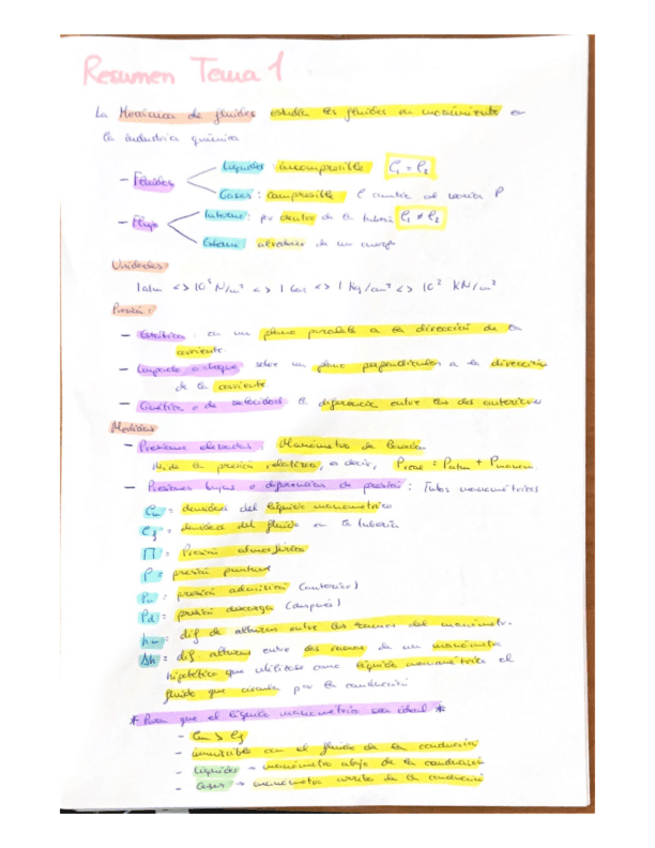 Resumen Tema 1
La Mecánica de fluidos estudia los fluidos en movimiento en
la industria química
- Fluidos
Líquidos: incompresible ρ₁ = ρ₂
Gases: compresible ρ cambia al variar P
- Flujo
Interno: por dentro de la tubería ρ₁ ≠ ρ₂
Externo: alrededor de un cuerpo
Unidades
1 atm <> 10⁵ N/m² <> 1 bar <> 1 Kg/cm² <> 10² KN/m²
Presión:
- Estática: en un plano paralelo a la dirección de la
corriente.
- Impacto o choque sobre un plano perpendicular a la dirección
de la corriente.
- Cinética o de velocidad la diferencia entre las dos anteriores
Medidas
- Presiones elevadas: Manómetro de Bourdon
Mide la presión relativa, es decir, Preal = Patm + Pmanom.
- Presiones bajas o diferencias de presión: Tubos manométricos
ρm = densidad del líquido manométrico
ρf = densidad del fluido en la tubería
Π = Presión atmosférica
P = presión puntual
Pa = presión admisión (anterior)
Pd = presión descarga (después)
hm = dif de alturas entre las ramas del manómetro.
Δh = dif. alturas entre dos ramas de un manómetro
hipotético que utilizase como líquido manométrico el
fluido que circula por la conducción
* Para que el líquido manométrico sea ideal *
- ρm > ρf
- inmiscible con el fluido de la conducción
- Líquidos → manómetro abajo de la conducción
- Gases → manómetro arriba de la conducción